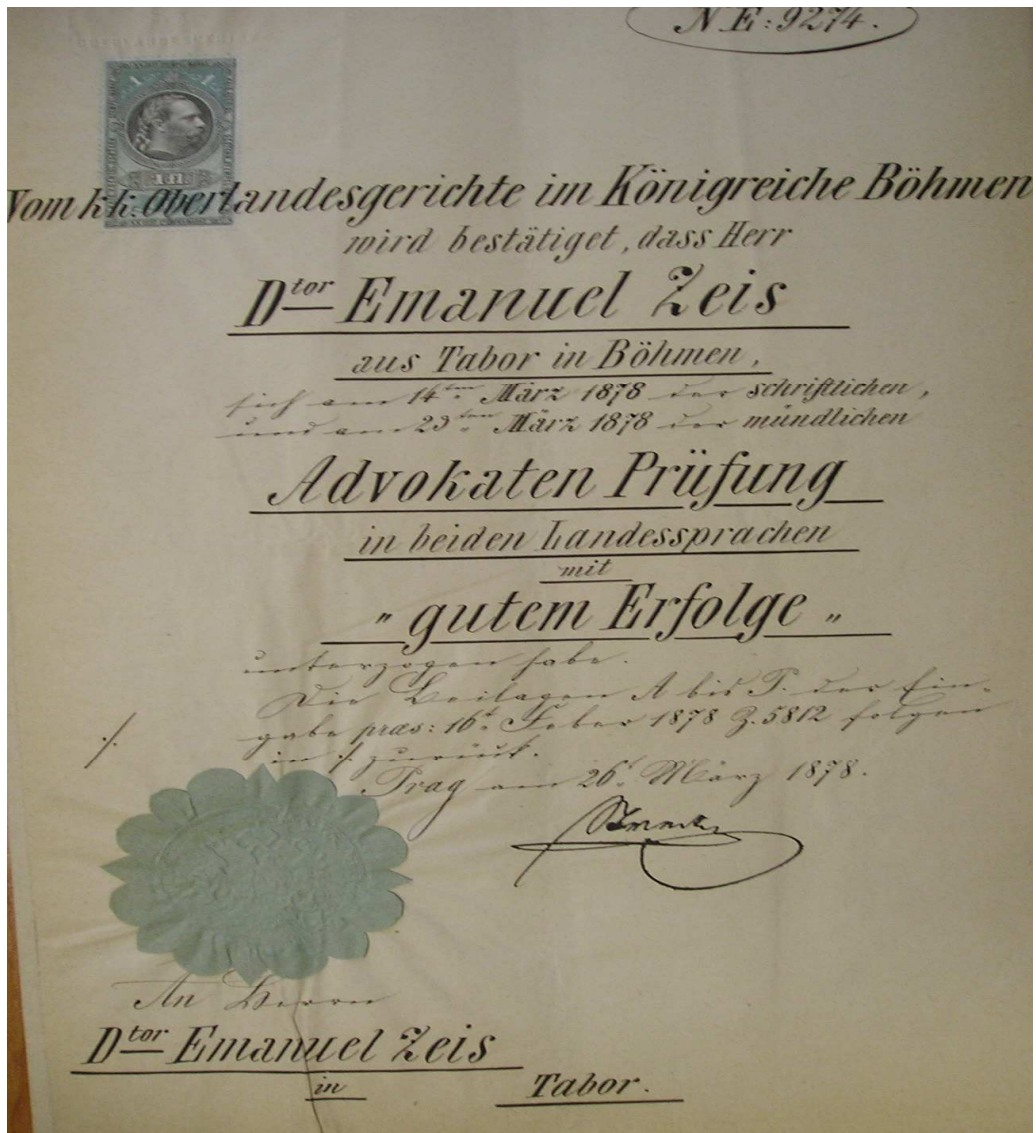 N.E: 9274.
1 1
1 fl.
Vom k.k. Oberlandesgerichte im Königreiche Böhmen
wird bestätiget, dass Herr
Dtor Emanuel Zeis
aus Tabor in Böhmen,
sich am 14ten März 1878 der schriftlichen,
und am 23ten März 1878 der mündlichen
Advokaten Prüfung
in beiden Landessprachen
mit
„ gutem Erfolge „
unterzogen habe.
Die Beilagen A bis P. der Ein-
gabe præs: 16t. Feber 1878 Z. 5812 folgen
./.
in ./. zurück.
Prag am 26t. März 1878.
An Herrn
Dtor Emanuel Zeis
in Tabor.